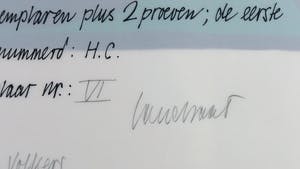 emplaren plus 2 proeven; de eerste
nummerd: H.C.
laat nr.: VI
Volkers